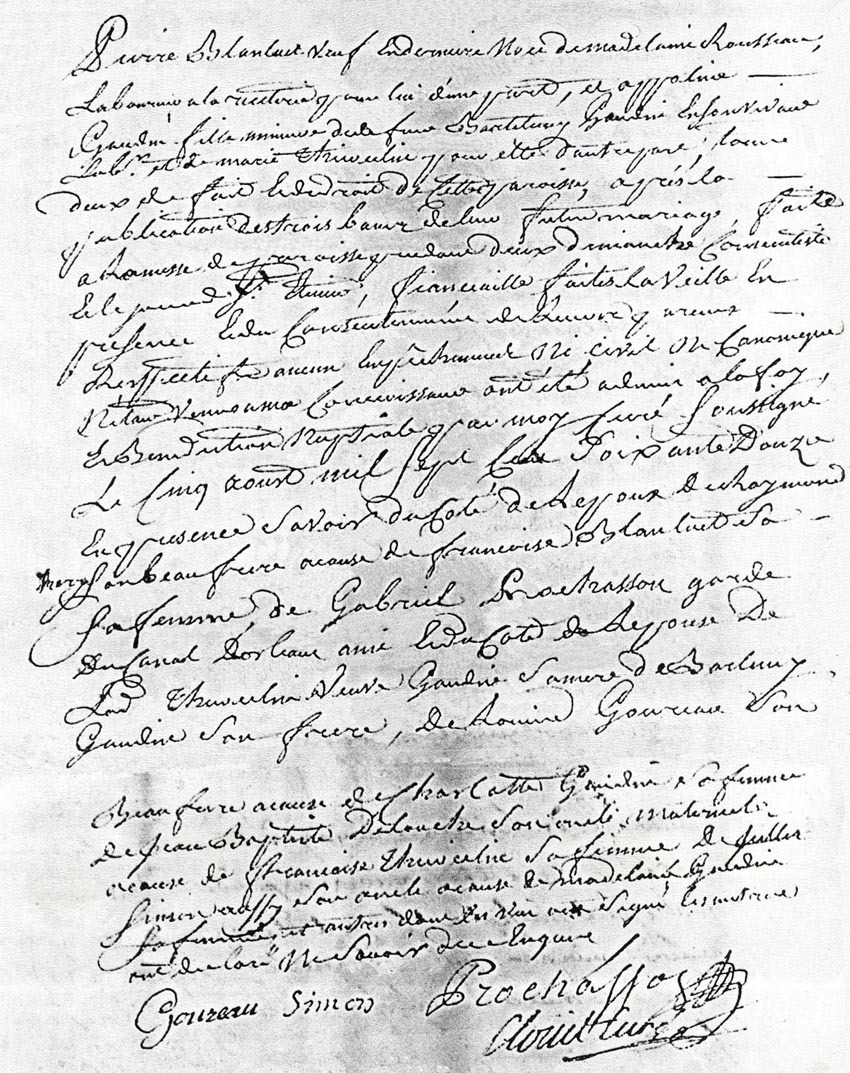 Pierre Blanluet veuf Enderniere Noce de madelaine Rousseau,
Laboureur a la pour lui d'une part, et appoline
Gaudin fille mineure de feue Bartelemy Gaudin Ensonvivant
Lab.r et de marie Thivoelin pour elle d'autre part, tous
deux de fait Et de droit de Cette paroisse, après la
publication des trois bans de leur futur mariage, faite
a La messe de paroisse pendant deux dimanche Consecutifs
Et le jour de St. , fiancaille faites La veille En
presence Et du Consentement de Leurs parens
Respectifs aucun Empechement Ni civil Ni Canonique
N'etant venu a ma Connoissance ont été admis a la foy
Et Benediction Nuptiale par moy Curé Soussigné
Le Cinq aoust mil Sept Cent Soixante Douze
En presence Savoir du Coté de L'epoux de Raymond
Son beau frere acause de francoise Blanluet Sa
Sa femme, de Gabriel Prochasson garde
Du Canal D'orleans ami Et du Coté de L'epouse De
Lad. Thivoelin Veuve Gaudin Sa mere de Bartemy
Gaudin Son frere, De Goureau Son
Beau frere acause de Charlotte Gaudin Sa femme
de Jean Baptiste Delouche Son oncle Maternel
acause de francoise Thivoelin Sa femme De
Simon Son oncle acause de madelaine Gaudin
Sa femme et autres dont En ont Signé Les autres
ont declaré Ne Savoir de ce Enquis
Goureau Simon Prochasson
Curé